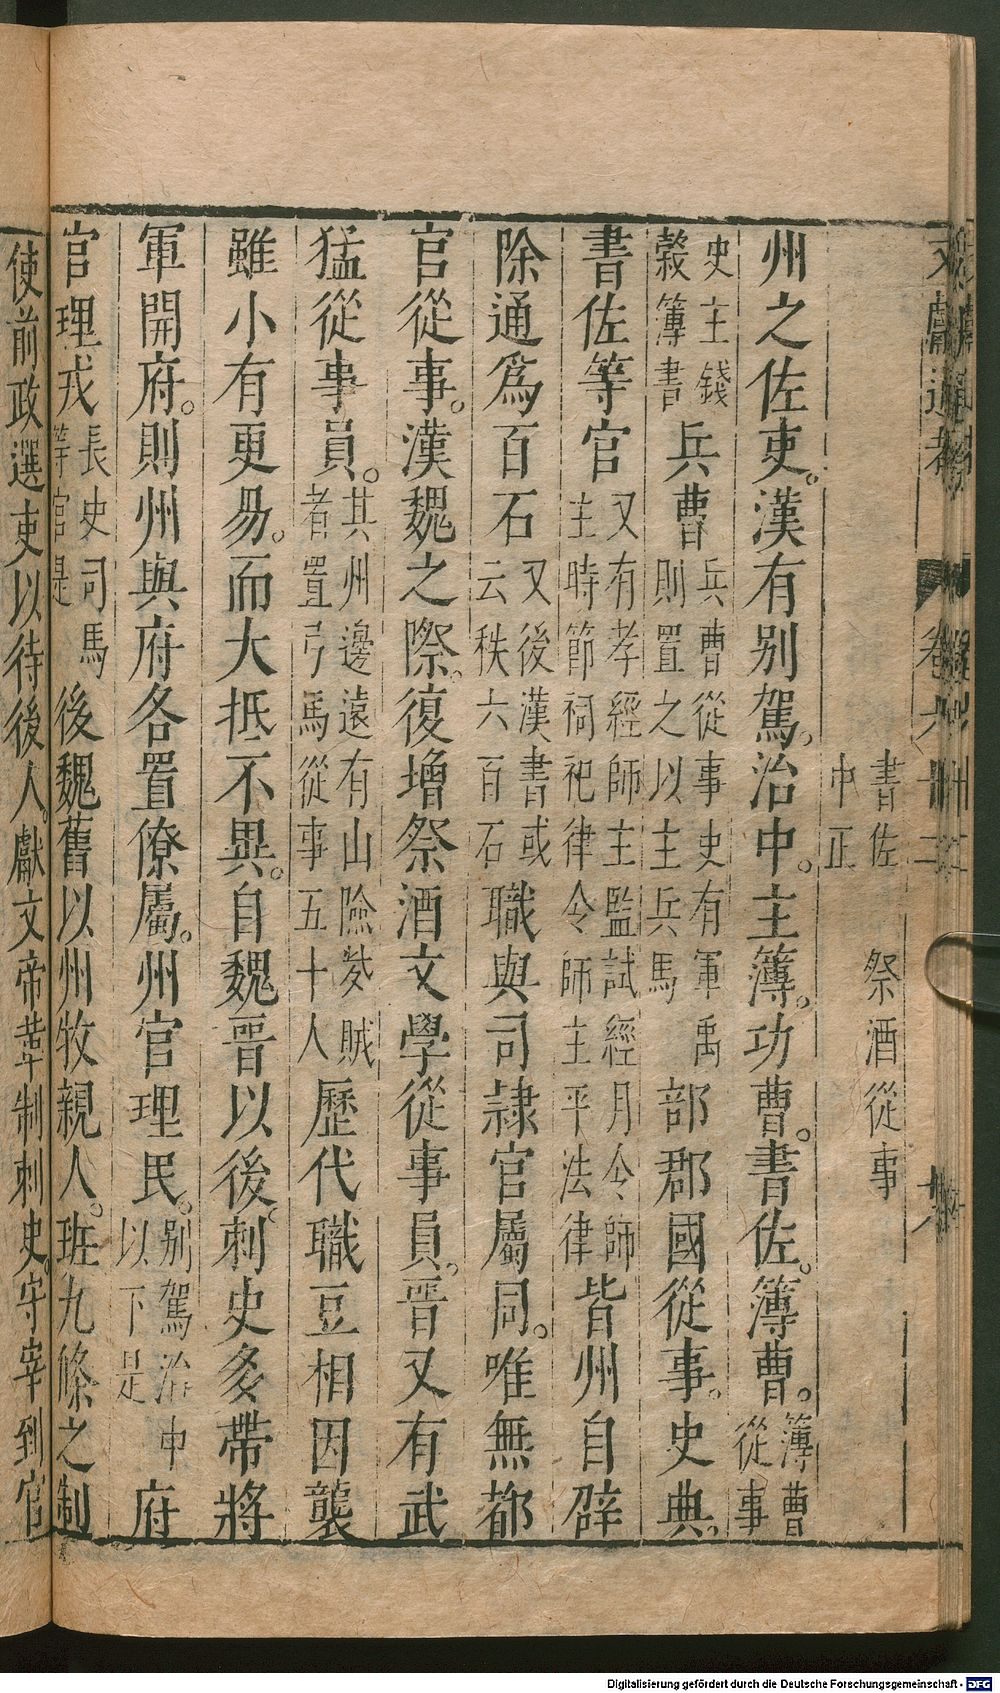 書佐　祭酒從事
中正
州之佐吏。漢有别駕。治中。主簿。功曹。書佐。簿曹。簿曹從事
史主錢穀簿書兵曹兵曹從事史有軍禹則置之以主兵馬部郡國從事。史典。
書佐等官又有孝經師主監試經月令師主時節祠祀律令師主平法律皆州自辟
除通爲百石又後漢書或云秩六百石職與司隷官屬同。唯無都
官從事。漢魏之際。復增祭酒文學從事員。晉又有武
猛從事員。其州邊遠有山險𭀚賊者置弓馬從事五十人歷代職豆相因襲
雖小有更易。而大抵不異。自魏晉以後。刺史多帶將
軍開府。則州與府各置僚屬。州官理民。别駕治中以下是府
官理戎長史司馬等官是後魏舊以州牧親人。班九條之制
使前政選吏以待後人。獻文帝革制刺史。守宰到官